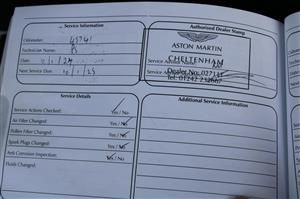 Service Information
Authorised Dealer Stamp
Km/mileage: 45741
Technician Name:
ASTON MARTIN
Date: /1/24
CHELTENHAM
Next Service Due: /1/25
Dealer No: 02711
Tel: 01242
Service Details
Additional Service Information
Service Actions Checked: Yes / No
Air Filter Changed: Yes / No
Pollen Filter Changed: Yes / No
Spark Plugs Changed: Yes / No
Anti Corrosion Inspection: Yes / No
Fluids Changed: